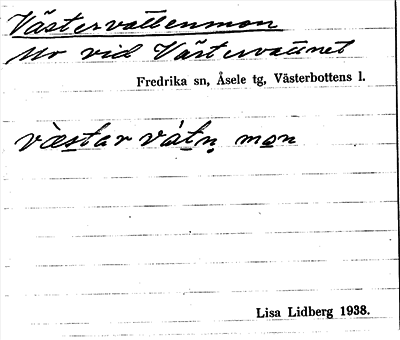 Västervattenmon
Mo vid Västervattnet
Fredrika sn, Åsele tg, Västerbottens l.
væstar vátṇ mo̲n
Lisa Lidberg 1938.